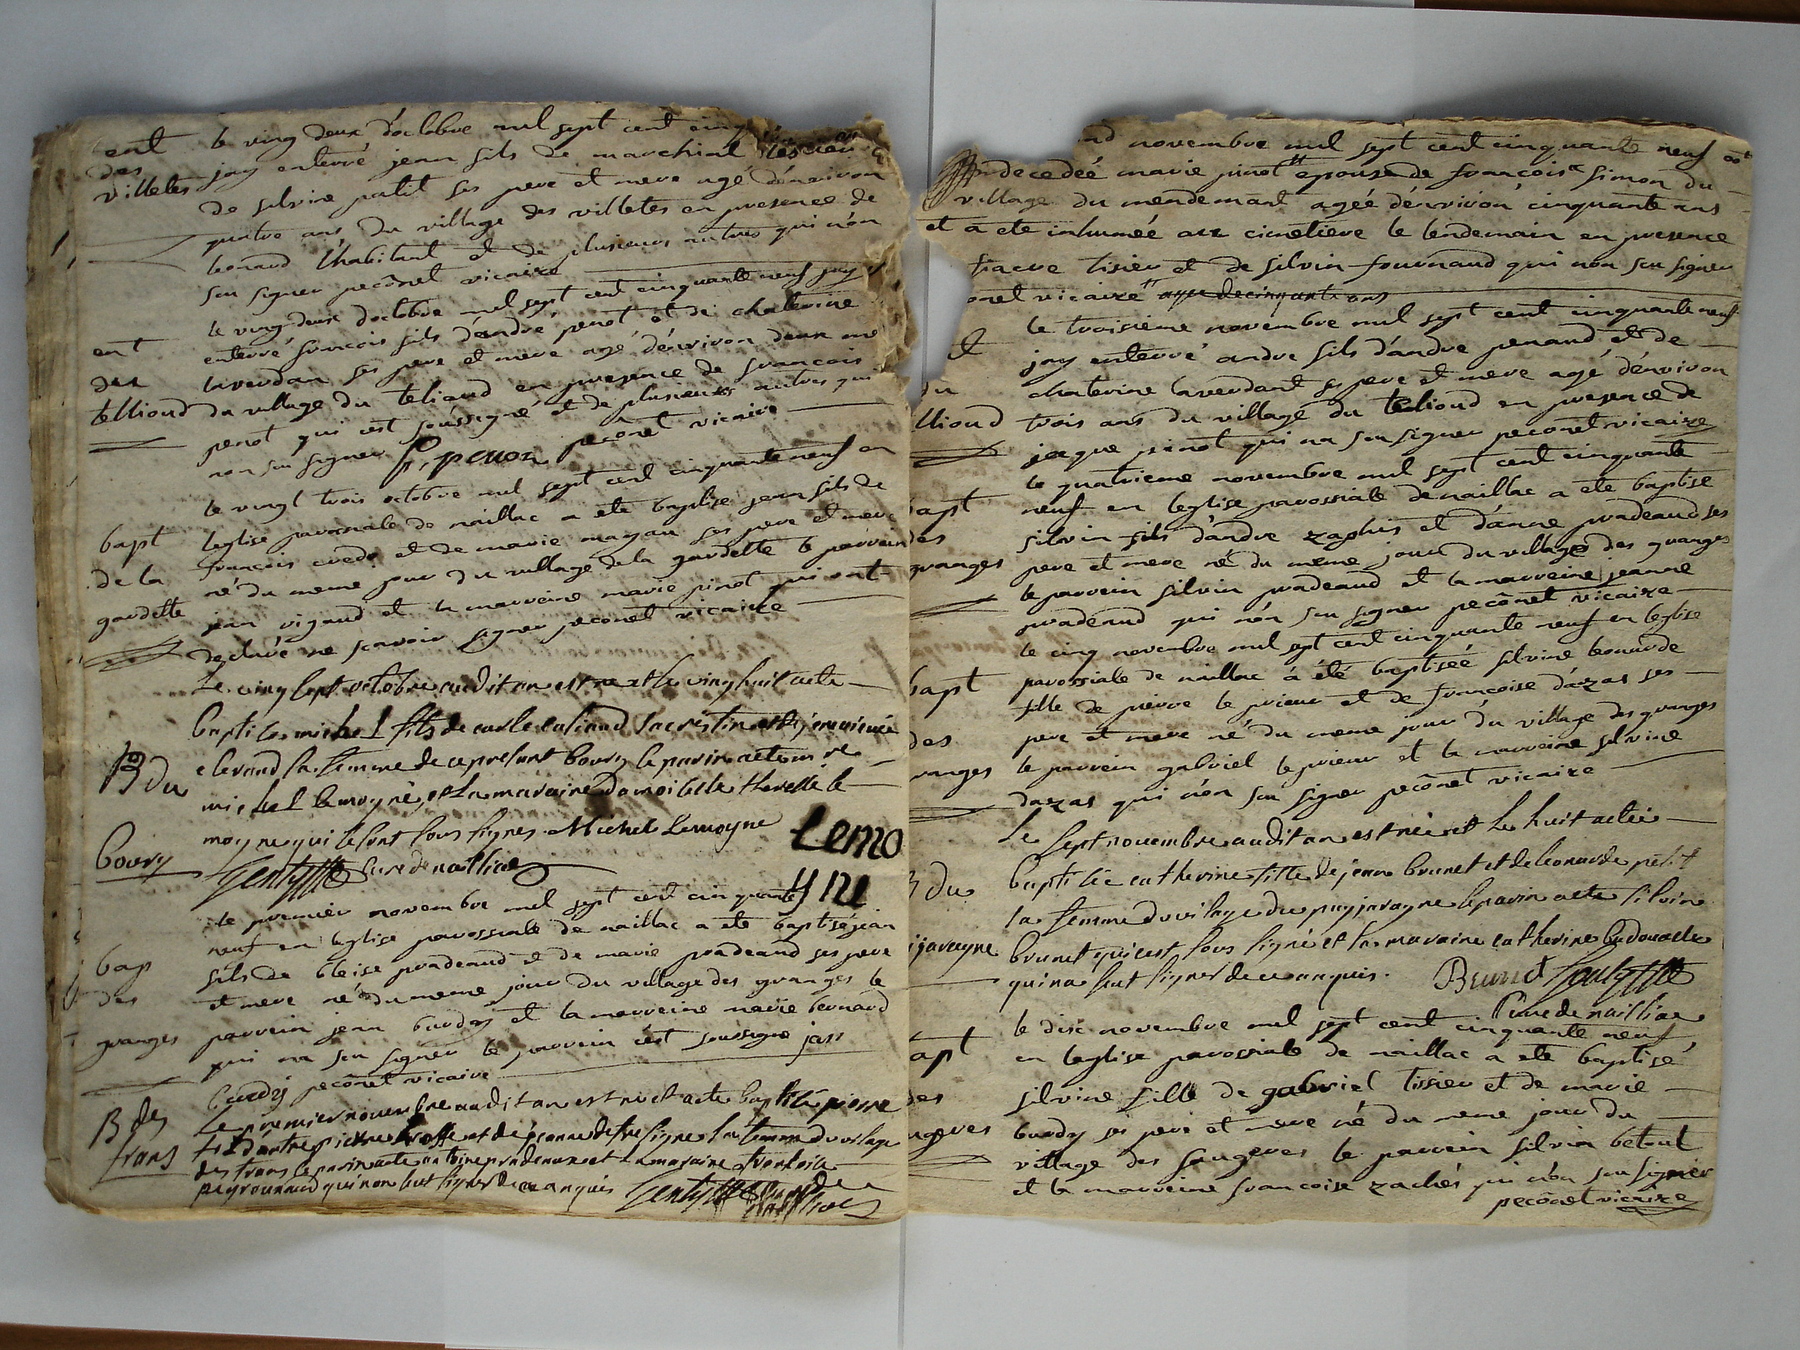 ent le vingt deux d'octobre mil sept cent
des
villetes jay enterré jean fils de marchial
de silvine petit ses pere et mere agé d'énviron
quatre ans du village des villetes en presence de
leonard l'habitant et de plusieurs autres qui n'on
seu signer peconet vicaire
le vingt deux d'octobre mil sept cent cinquante neuf jay
ent enterré françois fils d'andré penot et de chaterine
des laverdan ses pere et mere agé d'énviron deux
tellioud du village du teliaud en presence de françois
penot qui est soussigné et de plusieurs autres qui
non seu signer f. penon peconet vicaire
le vingt trois octobre mil sept cent cinquante neuf en
bapt leglise parossiale de naillac a ete baptisé jean fils de
françois crede et de marie mazau ses pere et mere
de la né du meme jour du village de la gardette le parrein
gardette jean rigaud et la marreine marie pinot qui ont
declaré ne scavoir signer peconet vicaire
Le vingt sept octobre audit an est né et le vingt huit a ete
baptisé michel fils de
B du la femme de ce present bourg le parin a ete mre
michel lemoyne et la maraine damoiselle therese le
moyne qui se sont sous signes. Michel Lemoyne Lemo
Bourg Gentyffe Curé de naillac yne
le premier novembre mil sept cent cinquante
neuf en leglise parossiale de naillac a ete baptisé jean
bap fils de bleise pradeaud et de marie pradeaud ses pere
des et mere né du meme jour du village des granges le
granges parrein jean burdy et la marreine marie bernard
qui na seu signer le parrein est soussigné jean
burdy peconet vicaire
B des Le premier novembre audit an est né et a ete baptisé pierre
frans la femme du vilage
des frans le parin a ete antoine pradeaux et la maraine francoise
peyrounaud qui nont seut signer de ce anquis Gentyffe Curé de
naillac
nd novembre mil sept cent cinquante neuf
decedée marie pinot epouse de françois simon du
village du mendement agéé d'énviron cinquante ans
et a ete inhumée au cimetiere le lendemain en presence
tisier et de silvin fournaud qui non seu signer
onet vicaire agee de cinquante ans
le troisieme novembre mil sept cent cinquante neuf
t jay enterré andre fils d'andre penaud et de
du chaterine laverdant ses pere et mere agé d'énviron
lliond trois ans du village du telioud en presence de
jaque pinot qui na seu signer peconet vicaire
le quatrieme novembre mil sept cent cinquante
apt neuf en leglise parossiale de naillac a ete baptisé
des silvin fils d'andre zaphis et d'anne pradeaud ses
granges pere et mere né du meme jour du village des granges
le parrein silvin pradeaud et la marreine jeanne
pradeaud qui n'ón seu signer peconet vicaire
le cinq novembre mil sept cent cinquante neuf en leglise
bapt parossiale de naillac à été baptiséé silvine leonarde
fille de pierre le prieur et de françoise dazas ses
des pere et mere né du meme jour du village des granges
ranges le parrein gabriel le prieur et la marreine silvine
dazas qui n'ón seu signer peconet vicaire
Le sept novembre audit an est née et le huit a etée
du baptisée catherine fille de jean brunet et de leonarde petit
la femme du vilage du puyjavayne le parin a ete silvin
javayne brunet qui cest sous signé et la maraine catherine
qui na seut signer de ce anquis. Brunet Gentyffe
Curé de nailliac
le disc novembre mil sept cent cinquante neuf
apt en leglise parossiale de naillac a ete baptisé
des silvine fille de gabriel tissier et de marie
burdy ses pere et mere né du meme jour du
ugeres village des faugeres le parrein silvin betout
et la marreine francoise zachés qui n'ón seu signer
peconet vicaire